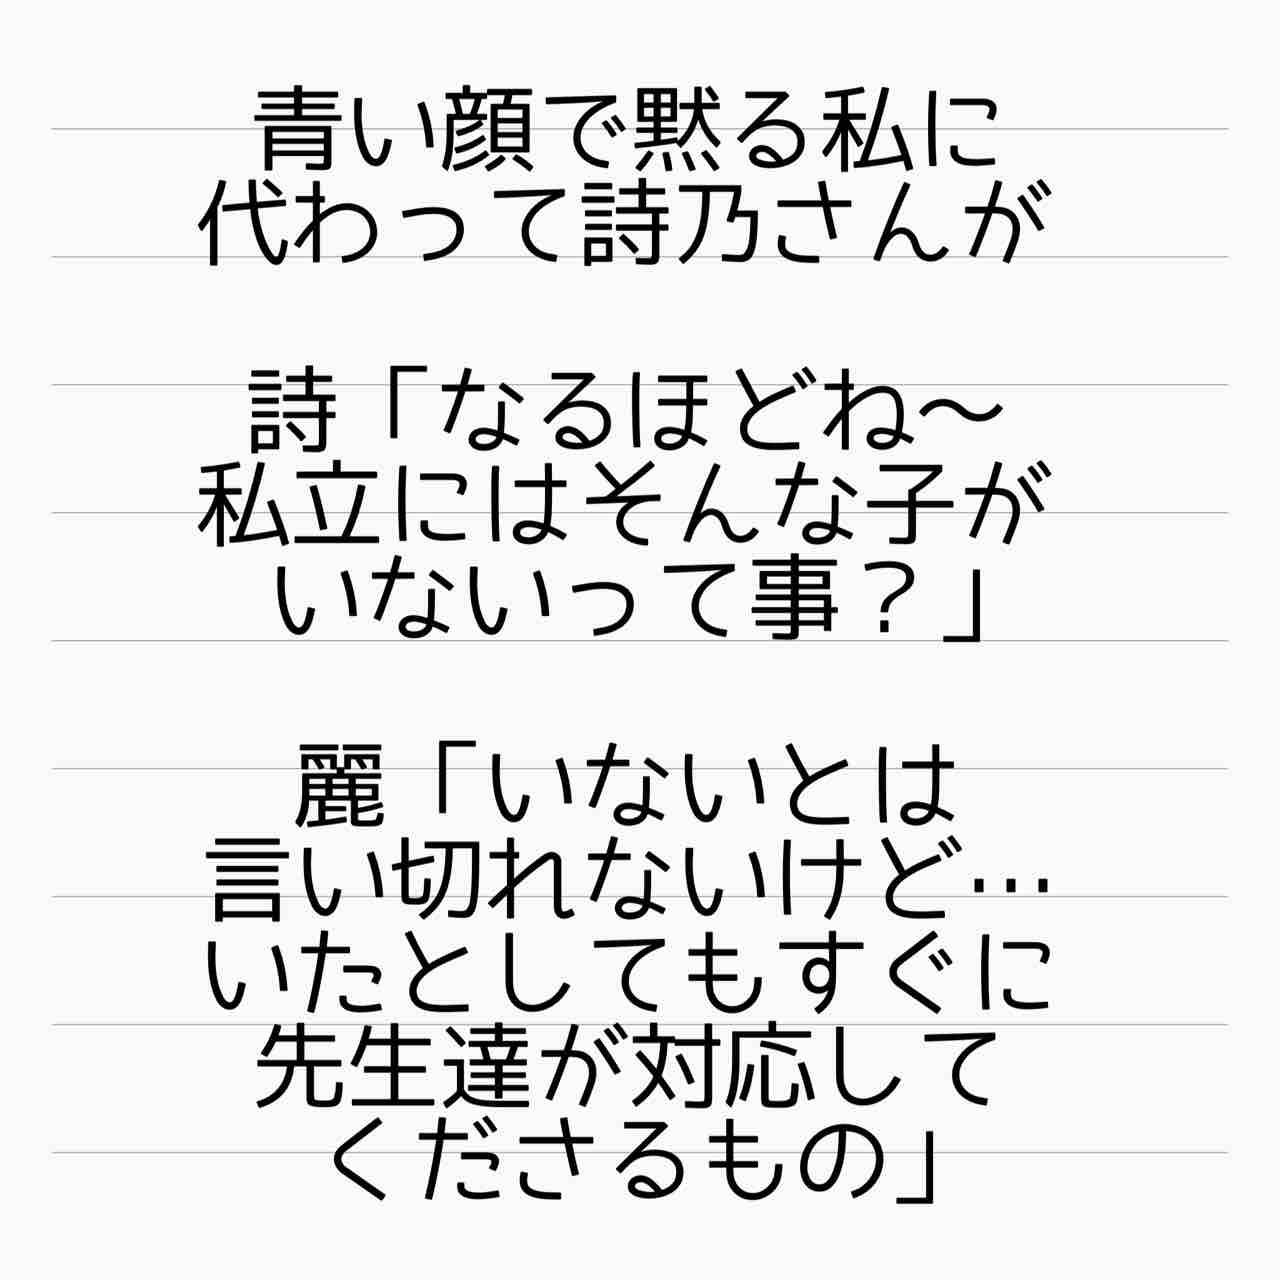 青い顔で黙る私に
代わって詩乃さんが
詩「なるほどね〜
私立にはそんな子が
いないって事？」
麗「いないとは
言い切れないけど…
いたとしてもすぐに
先生達が対応して
くださるもの」